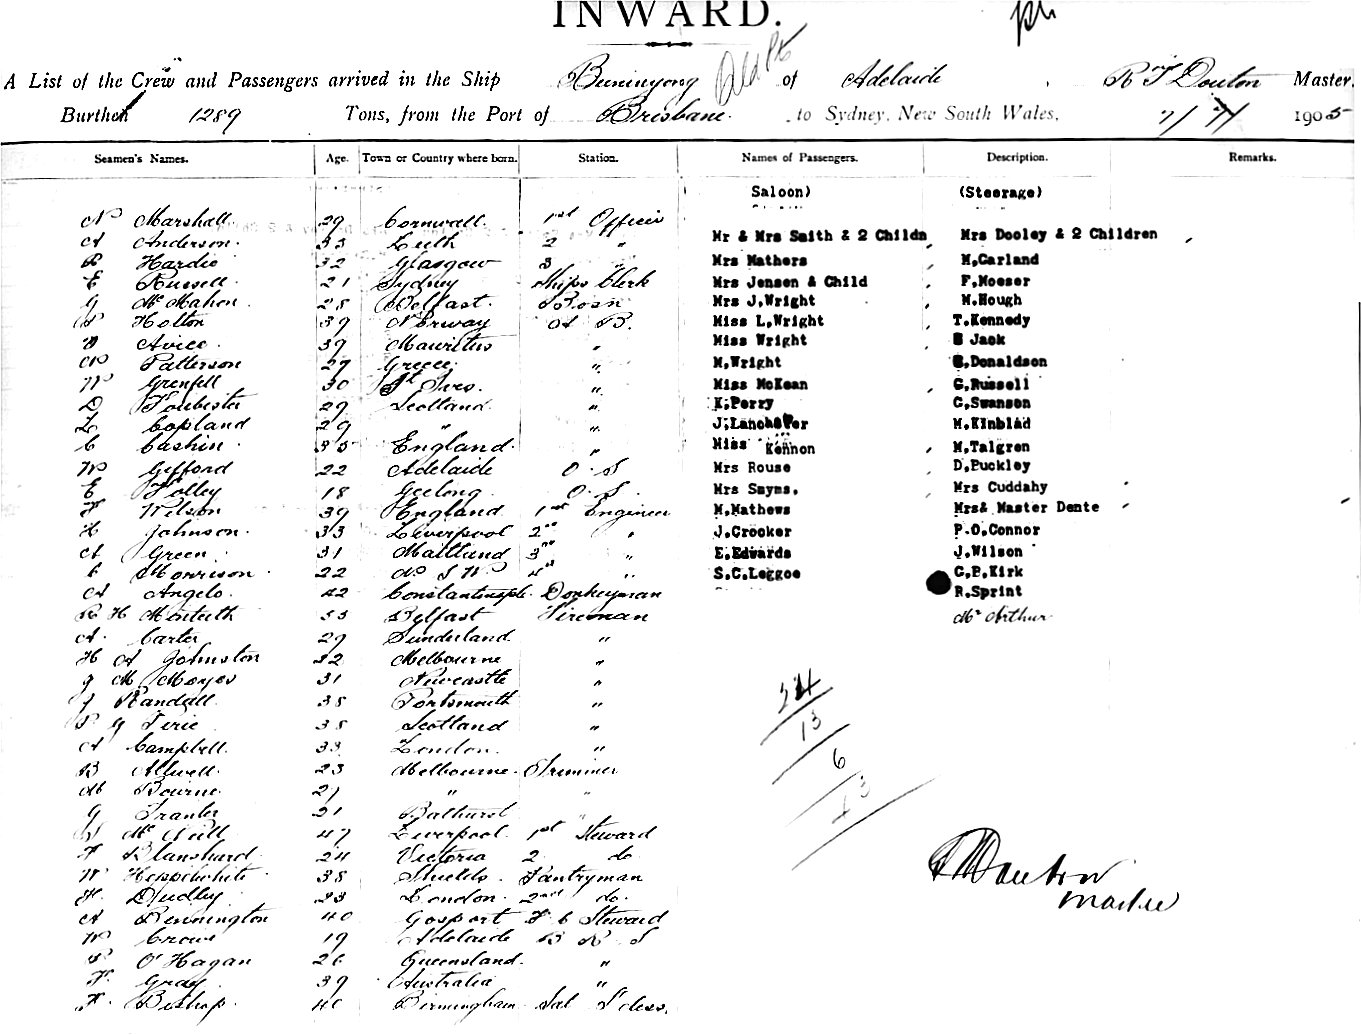 INWARD.
A List of the Crew and Passengers arrived in the Ship Buninyong of Adelaide, R T Douton Master,
Burthen 1289 Tons, from the Port of Brisbane to Sydney, New South Wales, 1905
Seamen's Names. Age. Town or Country where born. Station. Names of Passengers. Description. Remarks.
Saloon) (Steerage)
N Marshall 29 Cornwall 1st Officer
A Anderson 33 Leith 2 " Mr & Mrs Smith & 2 Childn Mrs Dooley & 2 Children
R Hardie 32 Glasgow 3 " Mrs Mathers M,Carland
E Russell 21 Sydney Ships Clerk Mrs Jensen & Child F,Moeser
G McMahon 28 Belfast Bosn Mrs J.Wright M.Hough
P Holton 39 Norway A B. Miss L,Wright T.Kennedy
Avice 39 Mauritus " Miss Wright Jack
N Patterson 29 Greece " M,Wright Donaldson
W Grenfell 30 St Ives " Miss McKean G,Russell
D Foubister 29 Scotland " K.Perry C,Swanson
L Copland 29 " " J.Lancaster M.Kinblad
C Cashin 35 England " Miss Kennon M,Talgren
W Gifford 22 Adelaide O. S Mrs Rouse D,Puckley
E Polley 18 Geelong O. S Mrs Sayms. Mrs Cuddahy
F Wilson 39 England 1st Engineer M.Mathews Mrs& Master Dente
H Johnson 33 Liverpool 2nd " J.Crooker P.O.Connor
A Green 31 Maitland 3rd " E.Edwards J.Wilson
C Morrison 22 N S W 4th " S.C.Leggoe G.P.Kirk
A Angelo 42 Constantinople Donkeyman R.Sprint
R H Monteith 33 Belfast Fireman McArthur
A Carter 29 Sunderland "
H A Johnston 32 Melbourne "
J M Moyes 31 Newcastle "
J Randall 38 Portsmouth "
P G Pirie 38 Scotland "
A Campbell 33 London "
B Atwell 23 Melbourne Trimmer
M Bourne 27 " "
G Tranter 21 Bathurst "
McNeill 47 Liverpool 1st Steward
F Blanshard 24 Victoria 2 do
W Hepplewhite 38 Shields Pantryman
H Dudley 23 London 2nd do.
A Rennington 40 Gosport F C Steward
W Crowe 19 Adelaide B R S
P O'Hagan 26 Queensland "
F Gray 39 Australia "
F Bishop 40 Birmingham Sal S'dess.
24
13
6
43
R T Douton
Master